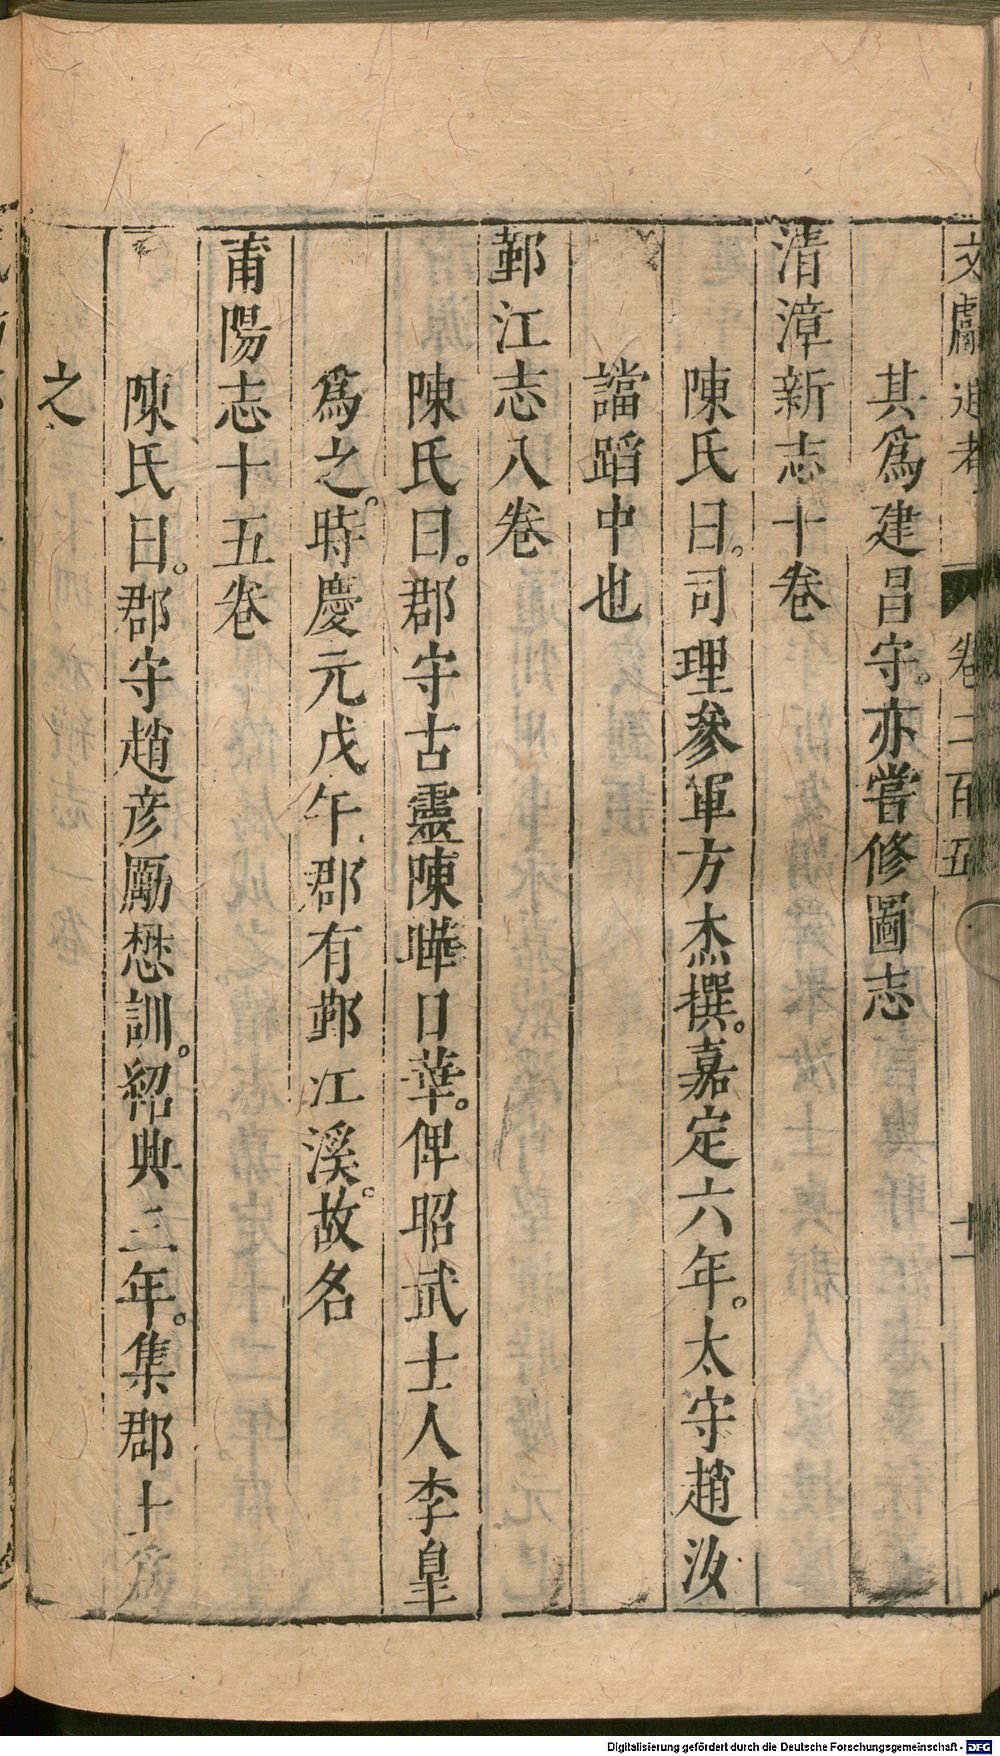 文獻通考 卷二百五 十一
其爲建昌守。亦嘗修圖志
清漳新志十卷
陳氏曰。司理參軍方杰撰。嘉定六年。太守趙汝
讜蹈中也
鄞江志八卷
陳氏曰。郡守古靈陳曄日華。俾昭武士人李皐
爲之。時慶元戊午。郡有鄞江溪。故名
莆陽志十五卷
陳氏曰。郡守趙彥勵懋訓。紹興三年。集郡士爲
之
Digitalisierung gefördert durch die Deutsche Forschungsgemeinschaft - DFG